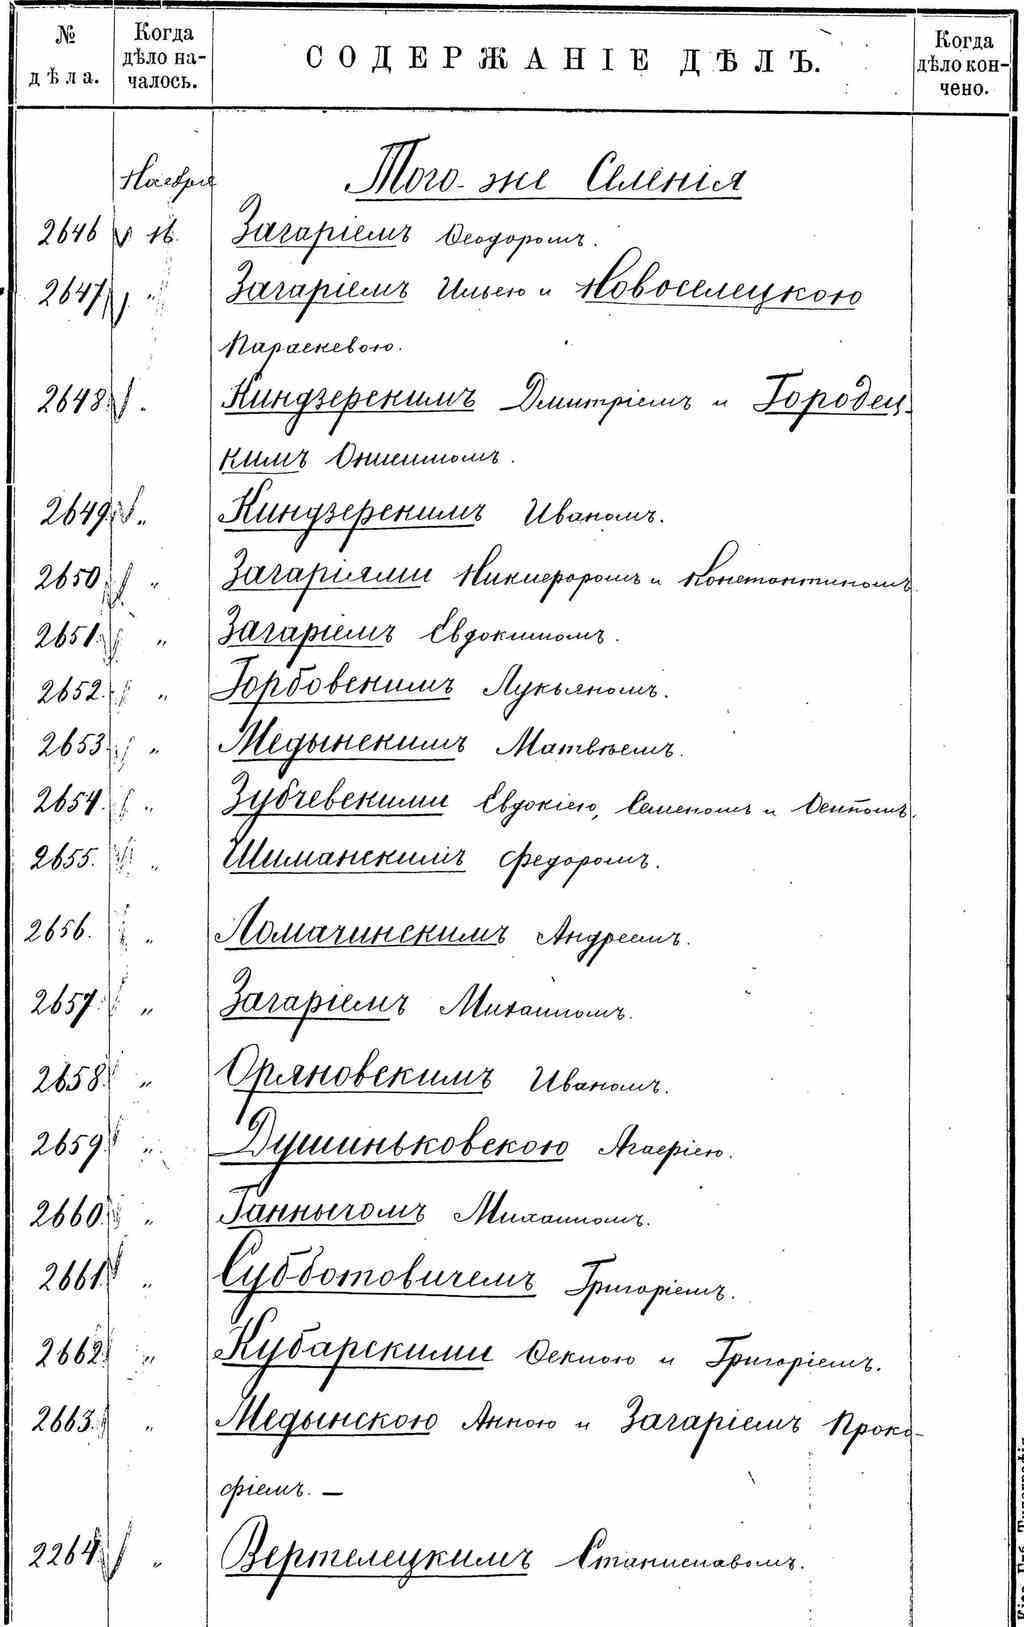 № дѣла.
Когда дѣло началось.
СОДЕРЖАНІЕ ДѢЛЪ.
Когда дѣло кончено.
Ноября Того-же Селенія
2646 16. Загаріемъ Ѳеодоромъ.
2647 " Загаріемъ Ильею и Новоселецкою
Параскевою.
2648 Киндзерскимъ Дмитріемъ и Городец-
кимъ Онисимомъ.
2649 " Киндзерскимъ Иваномъ.
2650 " Загаріями Никифоромъ и Константиномъ
2651. " Загаріемъ Евдокимомъ.
2652. " Горбовскимъ Лукьяномъ.
2653 " Медынскимъ Матвѣемъ.
2654. " Зубчевскими Евдокіею, Семеномъ и Осипомъ.
2655. " Шиманскимъ Федоромъ.
2656. " Ломачинскимъ Андреемъ.
2657. " Загаріемъ Михаиломъ.
2658. " Оряновскимъ Иваномъ.
2659. " Душиньковскою Агафіею.
2660. " Ганнычомъ Михаиломъ.
2661. " Субботовичемъ Григоріемъ.
2662. " Кубарскими Ѳеклою и Григоріемъ.
2663. " Медынскою Анною и Загаріемъ Проко-
фіемъ. —
2264 " Вертелецкимъ Станиславомъ.